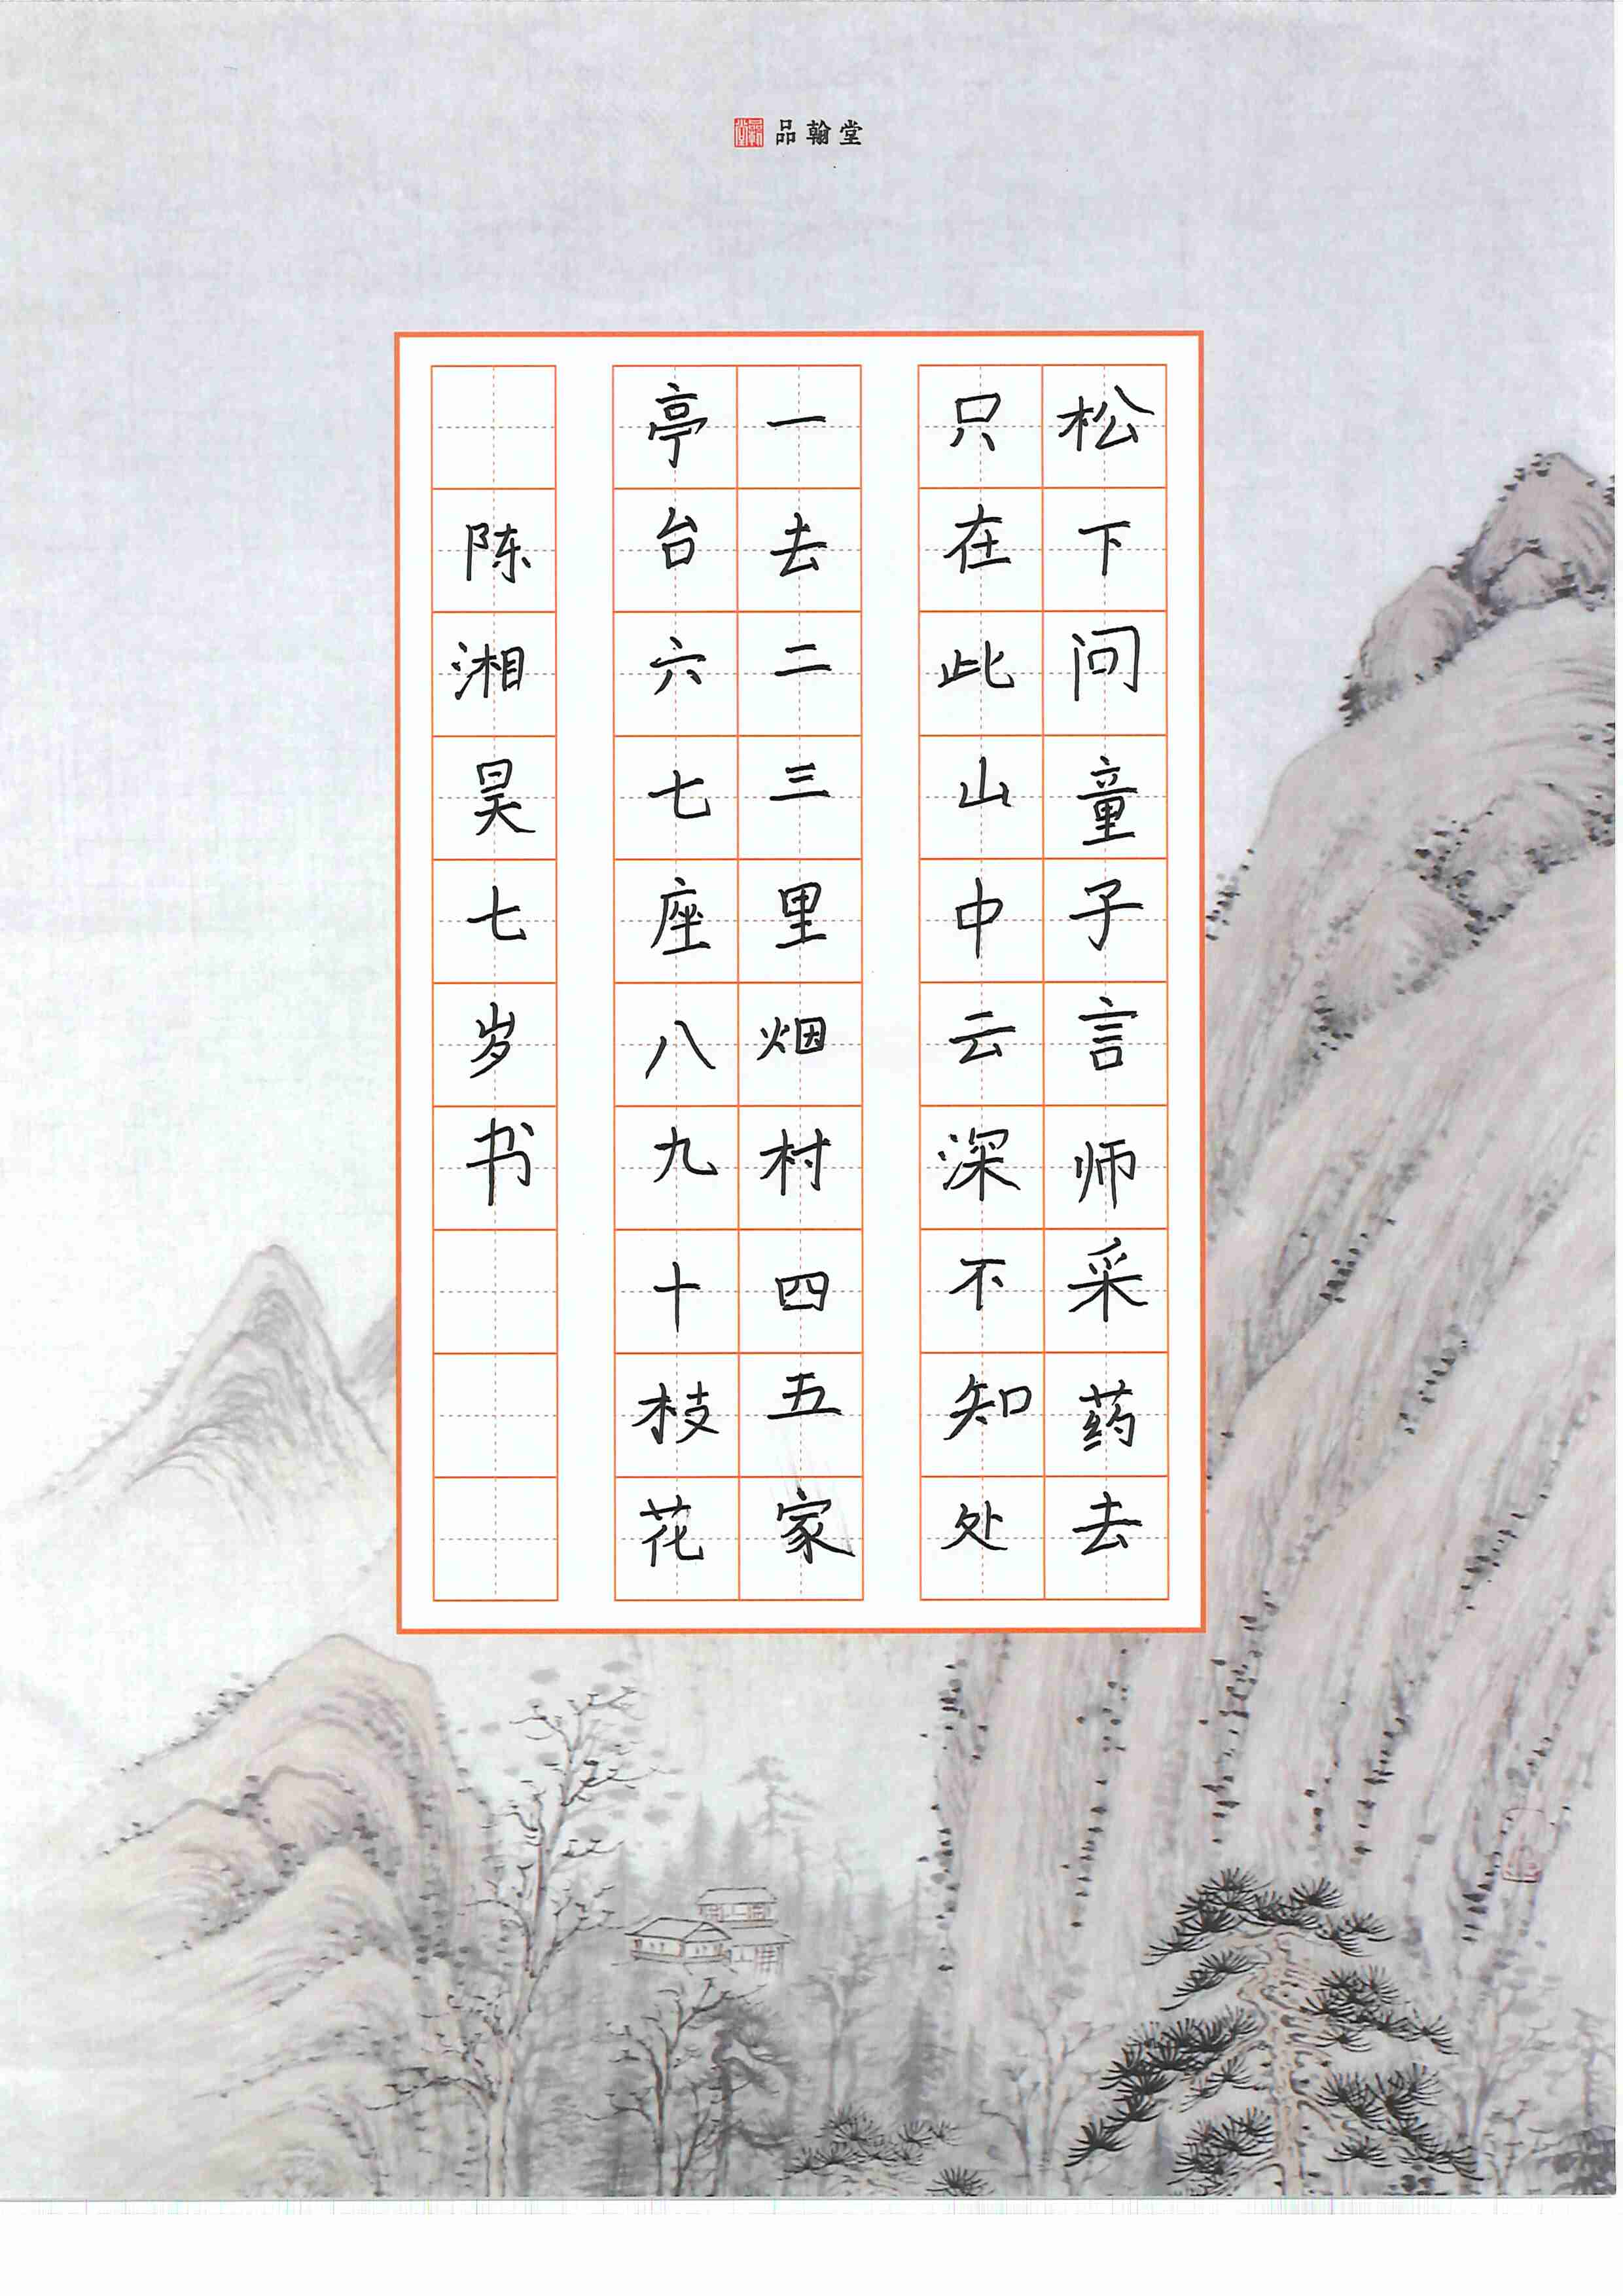 品翰堂
松下问童子言师采药去
只在此山中云深不知处
一去二三里烟村四五家
亭台六七座八九十枝花
陈湘昊七岁书